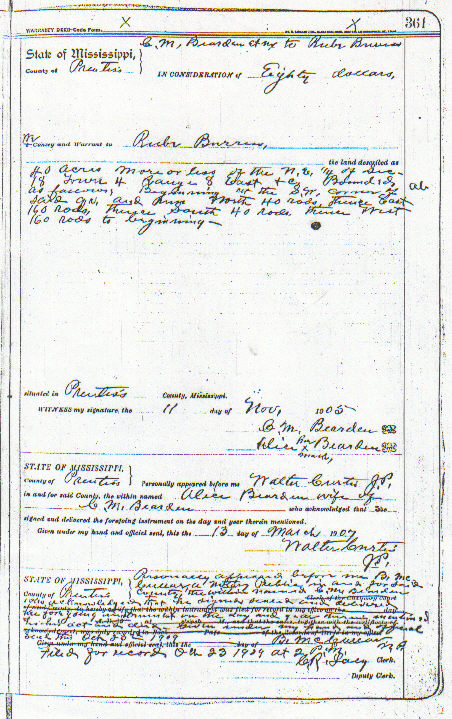 361
WARRANTY DEED—Code Form.
C. M. Bearden et ux to Rube Burress
State of Mississippi,
County of Prentiss
IN CONSIDERATION of Eighty dollars,
We Convey and Warrant to Rube Burress,
the land described as
40 acres more or less of the N.E. 1/4 of Sec
18 Town 4 Range 8 East & Bounded
as follows, Beginning at the S.W. corner of
said Qr, and run North 40 rods, thence East
160 rods, thence South 40 rods, thence West
160 rods to beginning—
situated in Prentiss County, Mississippi.
WITNESS my signature, the 11 day of Nov, 1905
C. M. Bearden
Alice her x mark Bearden
STATE OF MISSISSIPPI,
County of Prentiss Personally appeared before me Walter Curtis J.P.
in and for said County, the within named Alice Bearden wife of
C. M. Bearden who acknowledged that She
signed and delivered the foregoing instrument on the day and year therein mentioned.
Given under my hand and official seal, this the 13 day of March 1907
Walter Curtis
J.P.
STATE OF MISSISSIPPI, Personally appeared before me B. Mc
a Notary Public in and for said
County of Prentiss County the within named C. M. Bearden
who acknowledged that he signed and delivered
the foregoing instrument on the day and year therein mentioned
Given under my hand and official
seal this Oct 23 1909
Given under my hand and official seal, this the day of
N.P.
Filed for record Oct 23 1909 at 2 P.M.
Clerk.
Deputy Clerk.